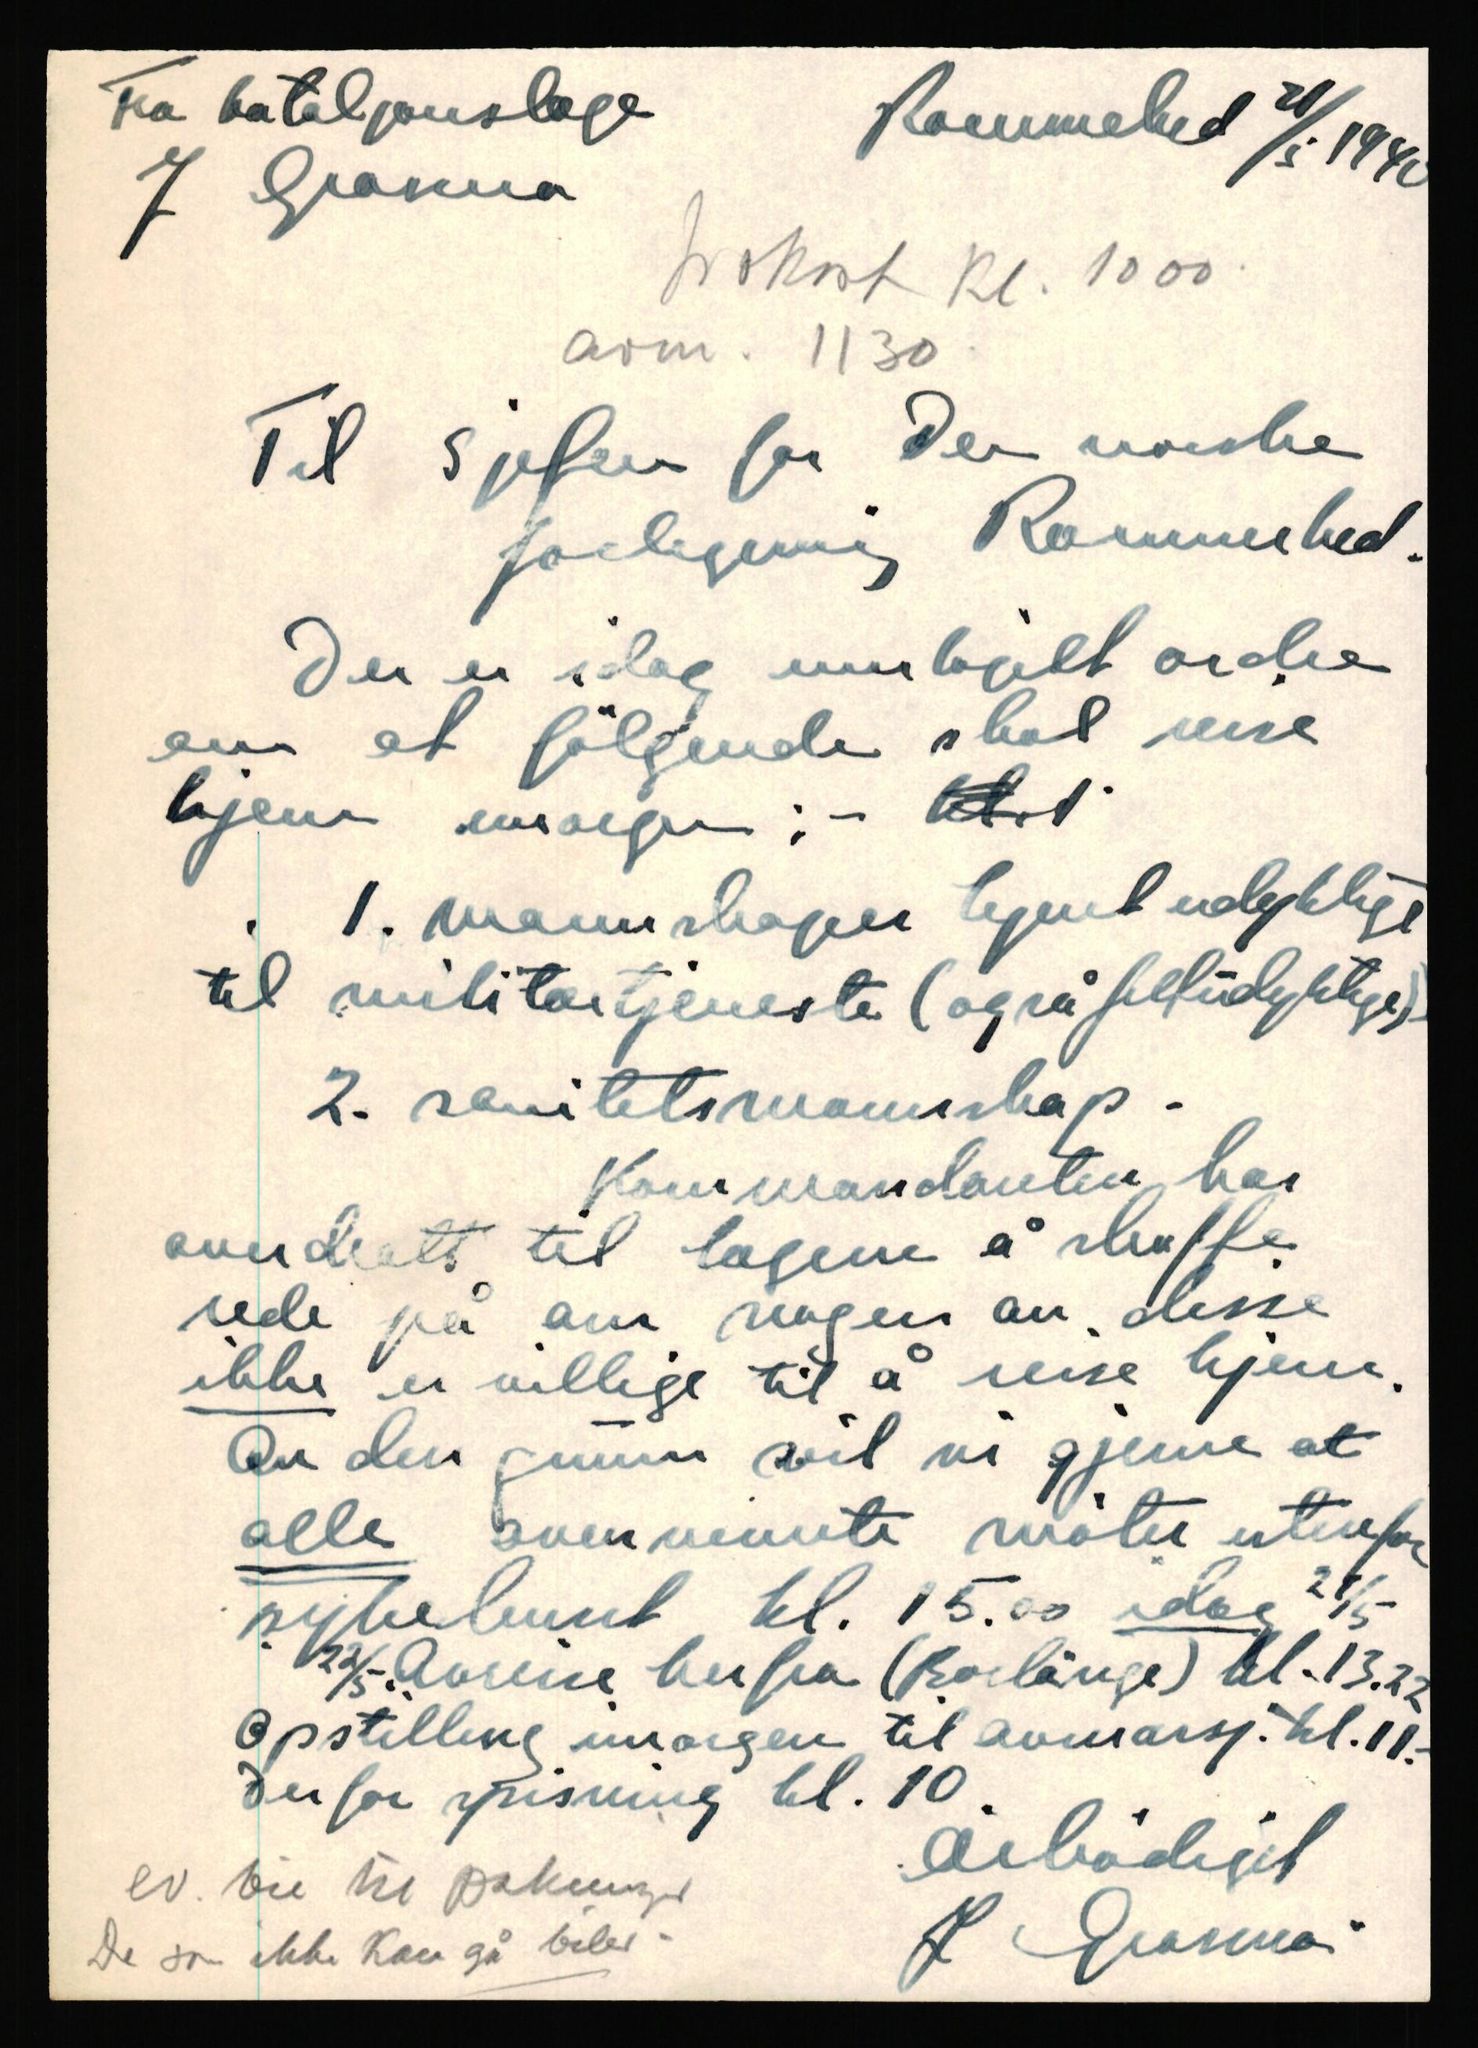 Fra bataljonslæge Rommehed 21/5 1940
J Grasmo
frokost kl. 1000.
avm. 1130.
Til Sjefen for Den norske
forlegning Rommehed.
Der er idag innløpet ordre
om at følgende skal reise
hjem imorgen :-
1. mannskaper kjent udyktige
til militærtjeneste (også feltudyktige)
2. sanitetsmannskap.
Kommandanten har
overdratt til lægene å skaffe
rede på om nogen av disse
ikke er villige til å reise hjem.
Av den grunn vil vi gjerne at
alle ovennevnte møter utenfor
sykehuset kl. 15.00 idag 21/5
22/5. Avreise herfra (Borlänge) kl. 13.22
Opstilling imorgen til avmarsj. kl. 11.-
Derfor spisning kl. 10.
Ærbødigst
J Grasmo
ev. bil til pakninger
De som ikke kan gå biler.